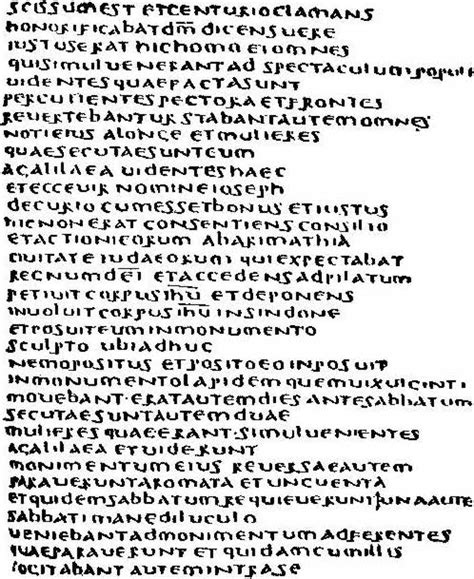 SCISSUM EST ET CENTURIO CLAMANS
HONORIFICABAT DM̅ DICENS UERE
IUSTUS ERAT HIC HOMO ET OMNES
QUI SIMUL UENERANT AD SPECTACULUM POPULI
UIDENTES QUAE FACTA SUNT
PERCUTIENTES PECTORA ET FRONTES
REUERTEBANTUR STABANT AUTEM OMNES
NOTI EIUS A LONGE ET MULIERES
QUAE SECUTAE SUNT EUM
A GALILAEA UIDENTES HAEC
ET ECCE UIR NOMINE IOSEPH
DECURIO CUM ESSET BONUS ET IUSTUS
HIC NON ERAT CONSENTIENS CONSILIO
ET ACTIONI EORUM AB ARIMATHIA
CIUITATE IUDAEORUM QUI EXPECTABAT
REGNUM DEI̅ ET ACCEDENS AD PILATUM
PETIUIT CORPUS IHU̅ ET DEPONENS
INUOLUIT CORPUS IHU̅ IN SINDONE
ET POSUIT EUM IN MONUMENTO
SCULPTO UBI ADHUC
NEMO POSITUS ET POSITO EO INPOSUIT
IN MONUMENTO LAPIDEM QUEM UIX UIGINTI
MOUEBANT · ERAT AUTEM DIES ANTE SABBATUM
SECUTAE SUNT AUTEM DUAE
MULIERES QUAE ERANT SIMUL UENIENTES
A GALILAEA ET UIDERUNT
MONIMENTUM EIUS REUERSAE AUTEM
PARAUERUNT AROMATA ET UNGUENTA
ET QUIDEM SABBATUM REQUIEUERUNT UNA AUTE
SABBATI MANE DILUCULO
UENIEBANT AD MONIMENTUM ADFERENTES
QUAE PARAUERUNT ET QUIDAM CUM ILLIS
COGITABANT AUTEM INTRA SE